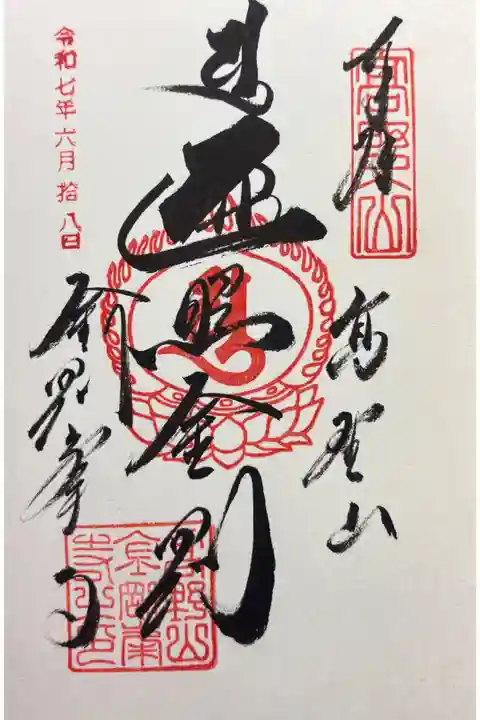 奉拝
高野山
高野山
遍照金剛
金剛峯寺
高野山金剛峯寺之印
令和七年六月拾八日